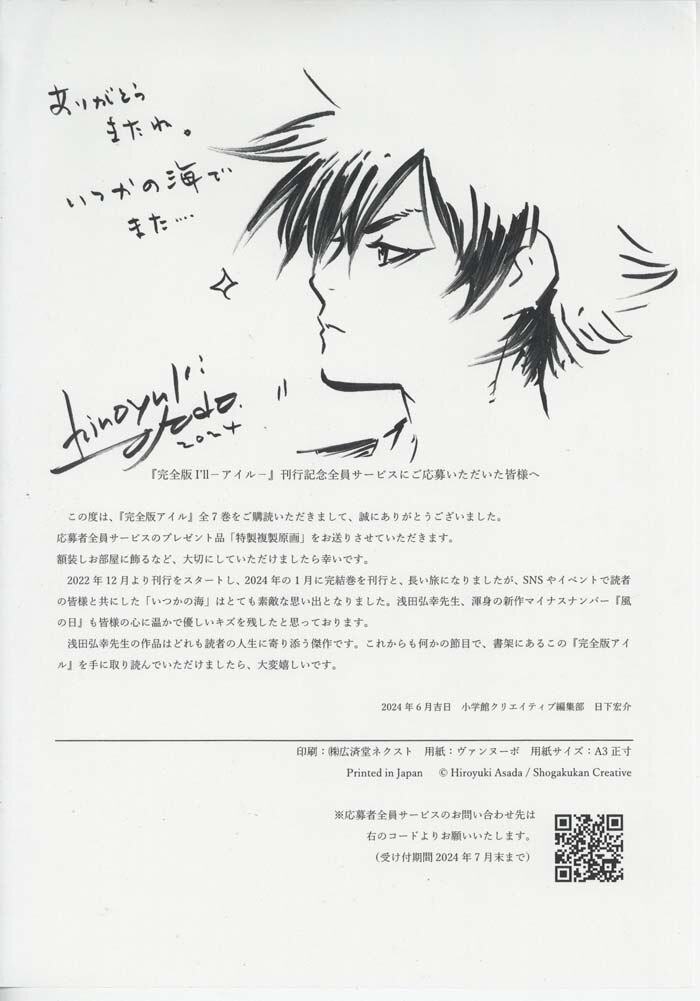 ありがとう
またね。
いつかの海で
また….
hiroyuki
asada.
2024
『完全版 I'll－アイル－』刊行記念全員サービスにご応募いただいた皆様へ
この度は、『完全版アイル』全７巻をご購読いただきまして、誠にありがとうございました。
応募者全員サービスのプレゼント品「特製複製原画」をお送りさせていただきます。
額装しお部屋に飾るなど、大切にしていただけましたら幸いです。
2022年12月より刊行をスタートし、2024年の1月に完結巻を刊行と、長い旅になりましたが、SNSやイベントで読者
の皆様と共にした「いつかの海」はとても素敵な思い出となりました。浅田弘幸先生、渾身の新作マイナスナンバー『風
の日』も皆様の心に温かで優しいキズを残したと思っております。
浅田弘幸先生の作品はどれも読者の人生に寄り添う傑作です。これからも何かの節目で、書架にあるこの『完全版アイ
ル』を手に取り読んでいただけましたら、大変嬉しいです。
2024年6月吉日　小学館クリエイティブ編集部　日下宏介
印刷：㈱広済堂ネクスト　用紙：ヴァンヌーボ　用紙サイズ：A3正寸
Printed in Japan　© Hiroyuki Asada / Shogakukan Creative
※応募者全員サービスのお問い合わせ先は
右のコードよりお願いいたします。
（受け付期間2024年7月末まで）